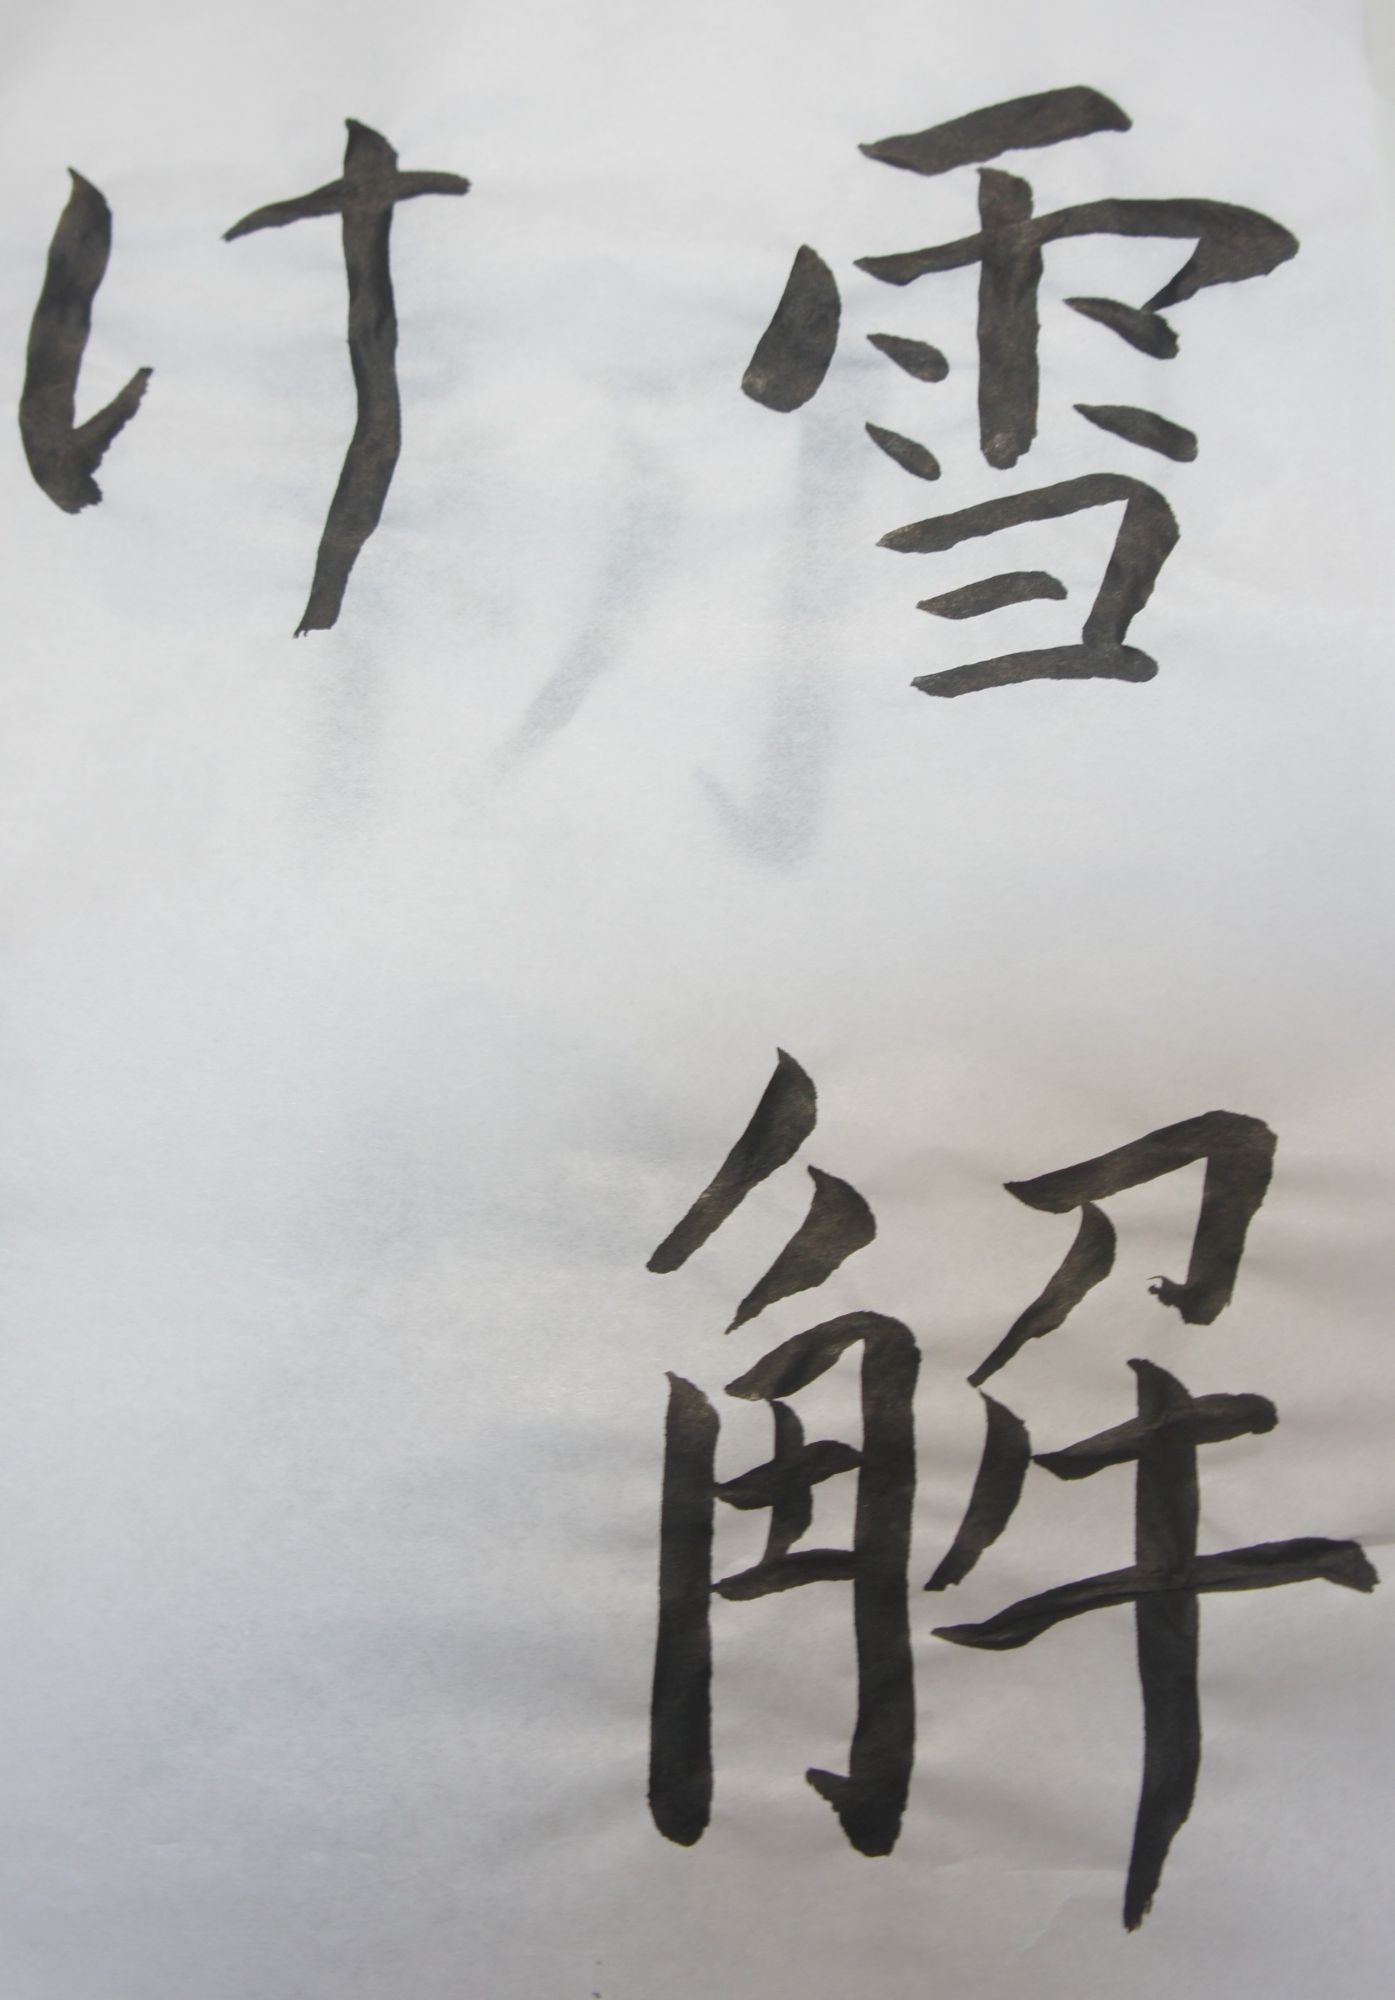 雪解
け